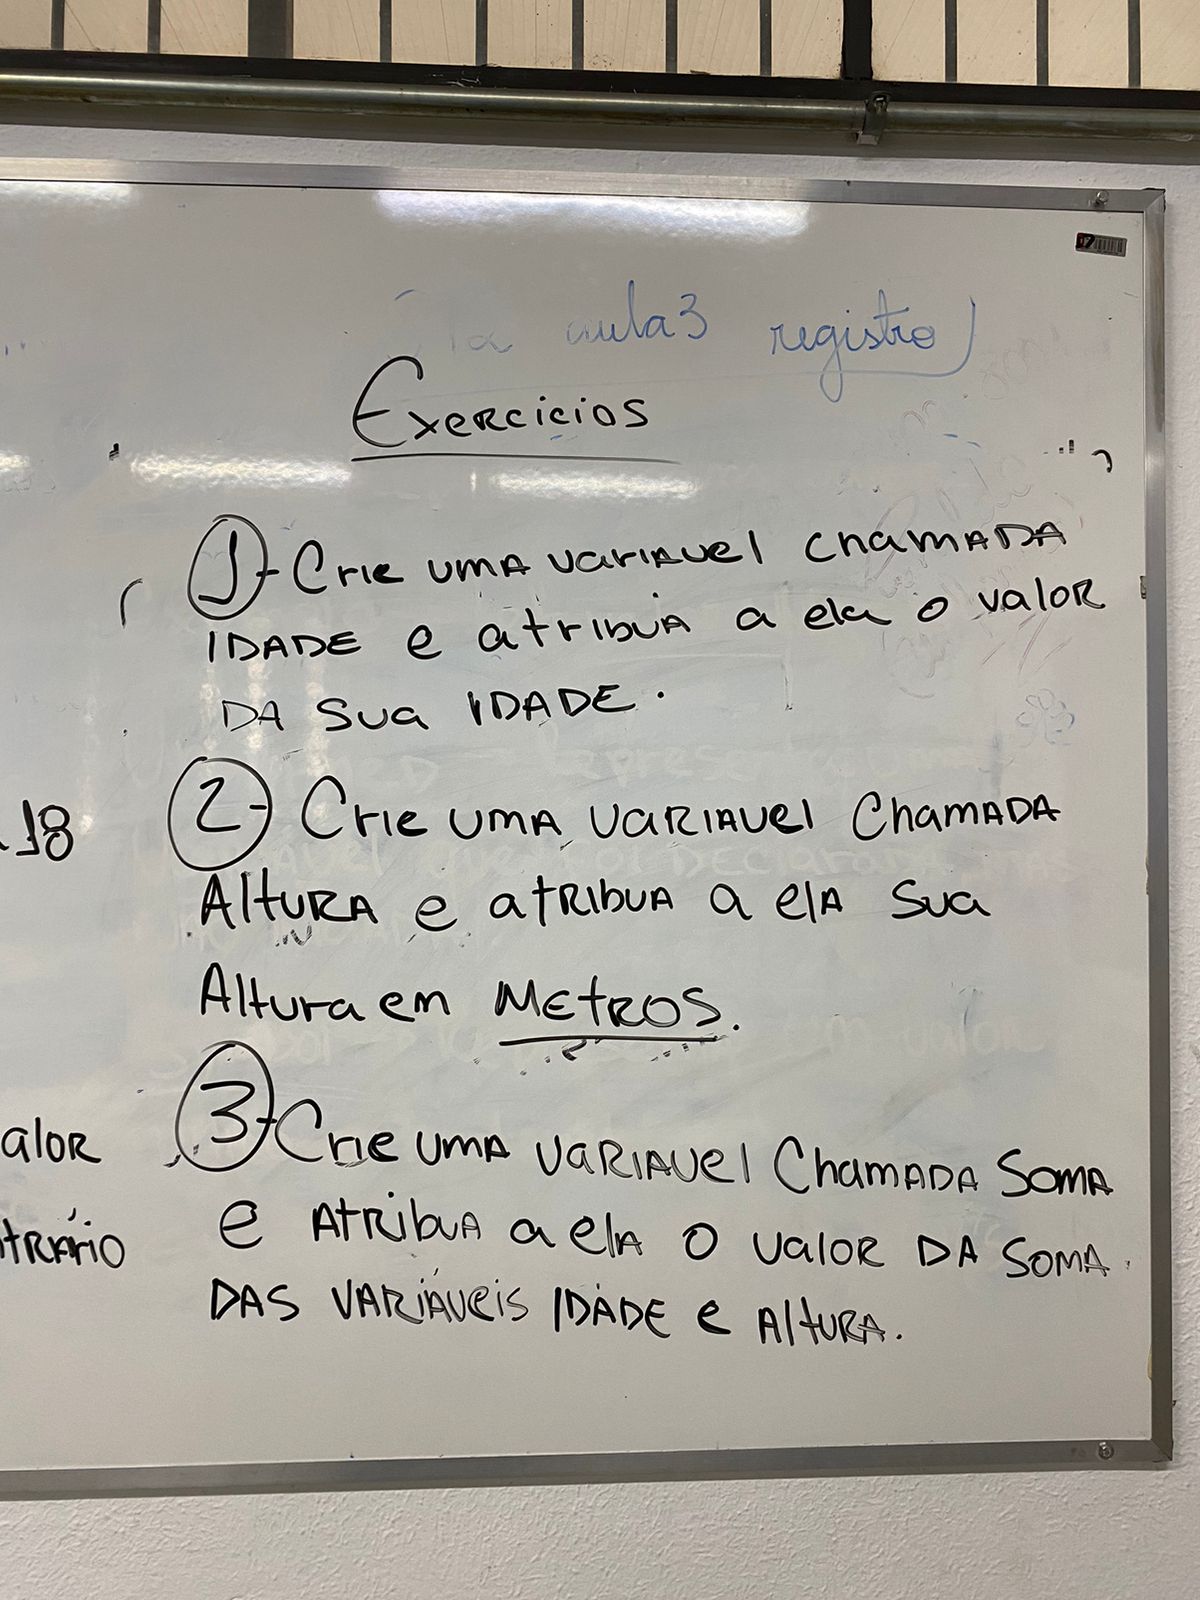 aula3 registro)
Exercicios
1- Crie uma variavel chamada
IDADE e atribua a ela o valor
DA sua IDADE.
2- Crie uma variavel chamada
Altura e atribua a ela sua
Altura em METROS.
3- Crie uma variavel chamada Soma
e atribua a ela o valor da soma
das variáveis IDADE e Altura.
18
alor
trário
17